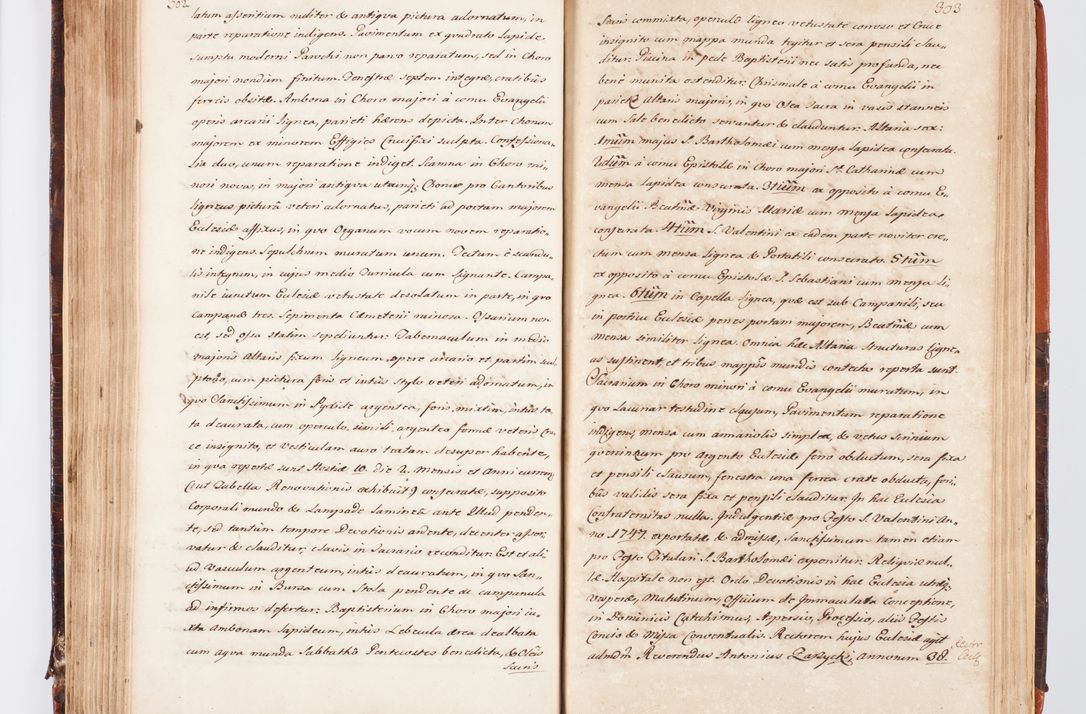 302
latum assentium nuliter & antiqva pictura adornatum, in
parte reparatione indigens. Pavimentum ex qvadrato Lapide
sumptu moderni Parochi non parvo reparatum, sed in Choro
majori nondum finitum. Fenestræ septem integræ, cratibus
ferreis obsitæ. Ambona in Choro majori à cornu Evangelii
operis arcarii lignea, parieti hærens depicta. Inter Chorum
majorem ex minorem Effigies Crucifixi sculpta. Confessiona„
lia duo, unum reparatione indiget. Scamna in Choro mi„
nori nova, in majori antiqva utrinq; Chorus pro Cantoribus
ligneus picturâ veteri adornatus, parieti ad portam majorem
Ecclesiæ affixus, in qvo Organum vocum novem reparatio„
ne indigens. Sepulchrum muratum unum. Tectum è scandu„
lis integrum, in cujus medio Turricula cum signante. Campa„
nile iunctum Ecclesiæ vetustate desolatum in parte, in qvo
campanæ tres. Sepimenta Cæmeterii ruinosa. Ossarium non
est, sed ossa statim sepeliuntur. Tabernaculum in medio
majoris Altaris fixum ligneum opere arcario et partim scul„
ptorio, cum pictura foris et intus stylo veteri adornatum, in
qvo Sanctissimum in Pyxide argentea, foris mixtim, intus to„
ta deaurata, cum operculo simili argenteo formæ veteris Cru„
ce insignito, et Vesticulam auro textam desuper habente,
in qva repertæ sunt Hostiæ 10. die 2. Mensis et Anni curren„
(ceu Tabella Renovationis exhibuit) consecratæ, supposito
Corporali mundo & Lampade laminea ante Illud penden„
te, sed tantum tempore Devotionis ardente, decenter asser„
vatur & clauditur, clavis in Sacrario reconditur. Est et ali„
ud Vasculum argenteum, intus deauratum, in qvo San„
ctissimum in Bursa cum Stola pendente & campanula
ad infirmos defertur. Baptisterium in Choro majori iu„
xta Ambonam lapideum, intus Lebecula ærea dealbata
cum aqva munda Sabbatho Pentecostes benedicta, & Oleis
Sacris
303
Sacris commixta, operculo ligneo vetustate corroso et Cruce
insignito cum mappa munda tegitur et sera pensili clau„
ditur. Piscina in pede Baptisterii nec satis profunda, nec
bene munita ostenditur. Chrismale à cornu Evangelii in
pariete Altaris majoris, in qvo Olea Sacra in vasis stanneis
cum Sale benedicto servantur & clauduntur. Altaria sex:
1mum majus S. Bartholomæi cum mensa lapidea consecrata.
2dum à cornu Epistolæ in Choro majori S. Catharinæ cum
mensa lapidea consecrata. 3tium ex opposito à cornu E„
vangelii Beatmæ Virginis Mariæ cum mensa lapidea
consecrata. 4tum S. Valentini ex eadem parte noviter ere„
ctum cum mensa lignea & Portatili consecrato. 5tum
ex opposito à cornu Epistolæ S. Sebastiani cum mensa li„
gnea. 6tum in Capella lignea, quæ est sub Campanili, seu
in porticu Ecclesiæ penes portam majorem, Beatmæ cum
mensa similiter lignea. Omnia hæc Altaria structuras ligne„
as sustinent, et tribus mappis mundis contecta reperta sunt.
Sacrarium in Choro minori à cornu Evangelii muratum, in
qvo Lacunar testudine clausum, Pavimentum reparatione
indigens, mensa cum armariolis simplex, & vetus scrinium
qvercinum pro argento Ecclesiæ ferro obductum, sera fixa
et pensili clausum, fenestra una ferrea crate obducta, fori„
bus validis sera fixa et pensili clauditur. In hac Ecclesia
Confraternitas nulla. Indulgentiæ pro Festo S. Valentini An„
no 1747. exportatæ & admissæ, Sanctissimum tamen etiam
pro Festo Titulari S. Bartholomæi exponitur. Reliqviæ nul„
læ. Hospitale non est. Ordo Devotionis in hac Ecclesia utriusq;
Vesperæ, Matutinum, Officium de Immaculata Conceptione,
in Dominicis Catechismus, Aspersio, Processio, aliis Festis
Concio & Missa Conventualis. Rectorem hujus Ecclesiæ agit
admdm Reverendus Antonius Zarzycki, annorum 38.
Rector
Eccl.